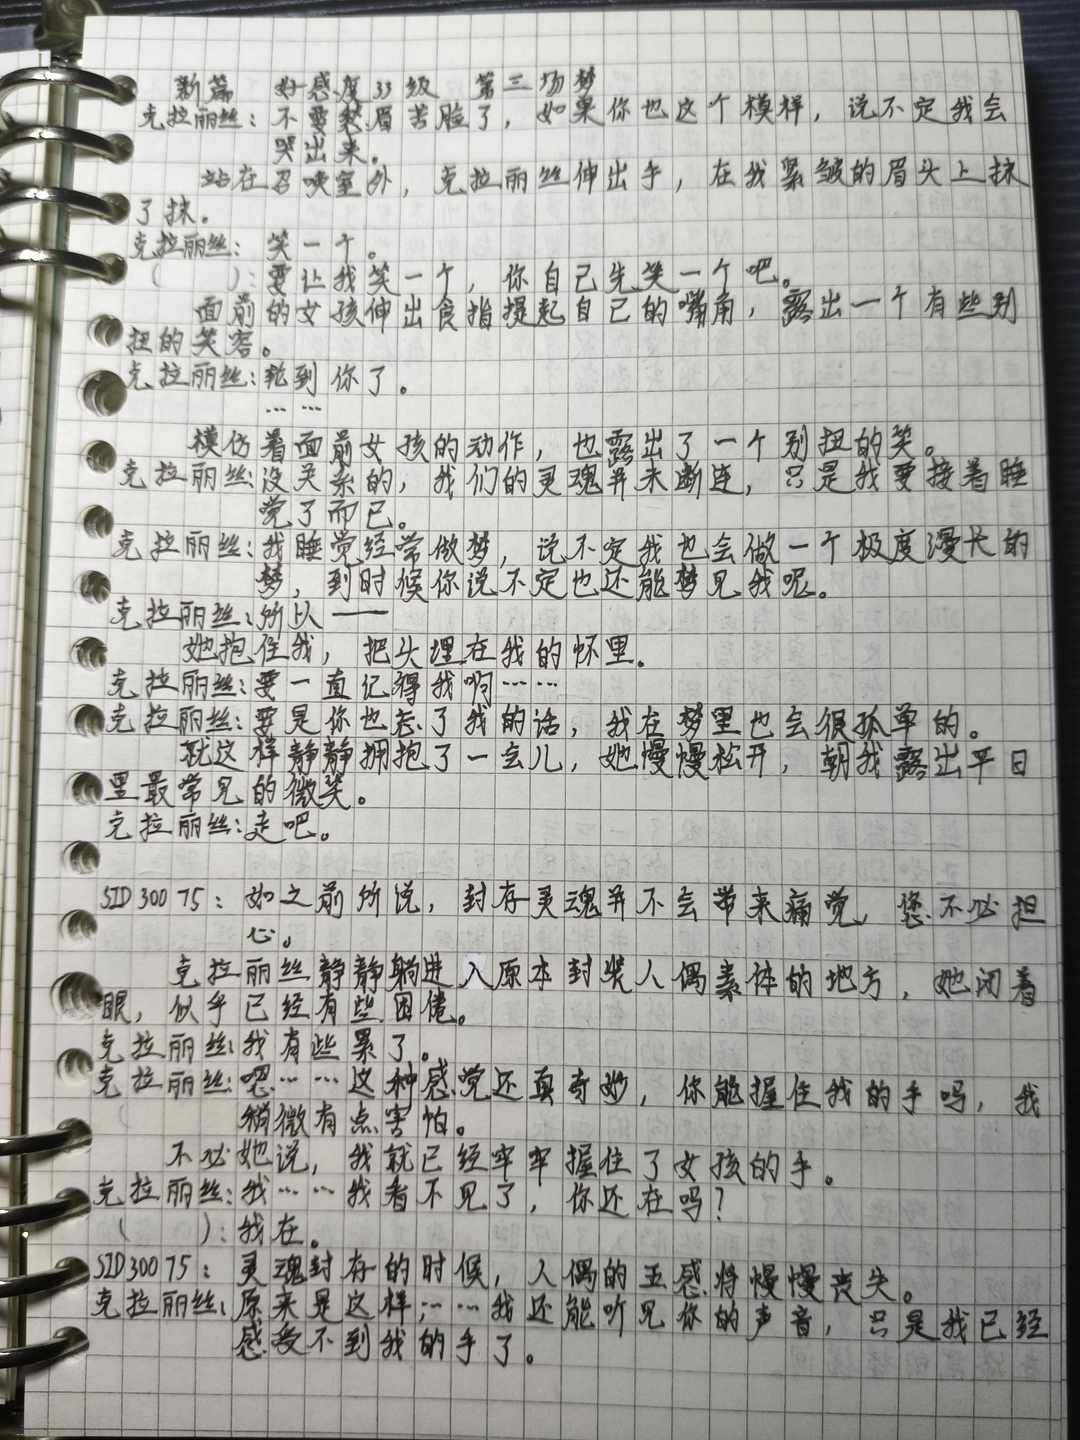 新篇 好感度33级 第三场梦
克拉丽丝：不要愁眉苦脸了，如果你也这个模样，说不定我会
哭出来。
站在召唤室外，克拉丽丝伸出手，在我紧皱的眉头上抹
了抹。
克拉丽丝：笑一个。
（ ）：要让我笑一个，你自己先笑一个吧。
面前的女孩伸出食指提起自己的嘴角，露出一个有些别
扭的笑容。
克拉丽丝：轮到你了。
……
模仿着面前女孩的动作，也露出了一个别扭的笑。
克拉丽丝：没关系的，我们的灵魂并未断连，只是我要接着睡
觉了而已。
克拉丽丝：我睡觉经常做梦，说不定我也会做一个极度漫长的
梦，到时候你说不定也还能梦见我呢。
克拉丽丝：所以——
她抱住我，把头埋在我的怀里。
克拉丽丝：要一直记得我啊……
克拉丽丝：要是你也忘了我的话，我在梦里也会很孤单的。
就这样静静拥抱了一会儿，她慢慢松开，朝我露出平日
里最常见的微笑。
克拉丽丝：走吧。
SID30075：如之前所说，封存灵魂并不会带来痛觉，您不必担
心。
克拉丽丝静静躺进入原本封装人偶素体的地方，她闭着
眼，似乎已经有些困倦。
克拉丽丝：我有些累了。
克拉丽丝：嗯……这种感觉还真奇妙，你能握住我的手吗，我
稍微有点害怕。
不必她说，我就已经牢牢握住了女孩的手。
克拉丽丝：我……我看不见了，你还在吗？
（ ）：我在。
SID30075：灵魂封存的时候，人偶的五感将慢慢丧失。
克拉丽丝：原来是这样；……我还能听见你的声音，只是我已经
感受不到我的手了。